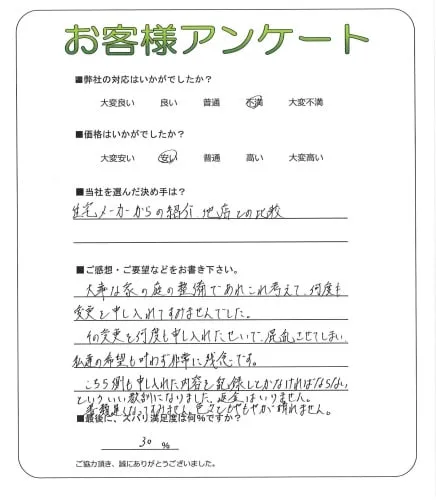 お客様アンケート
■弊社の対応はいかがでしたか?
大変良い 良い 普通 不満 大変不満
■価格はいかがでしたか?
大変安い 安い 普通 高い 大変高い
■当社を選んだ決め手は?
住宅メーカーからの紹介 他店との比較
■ご感想・ご要望などをお書き下さい。
大事な家の庭の整備であれこれ考えて、何度も
変更を申し入れてすみませんでした。
その変更を何度も申し入れたせいで、混乱させてしまい、
私達の希望も叶わず非常に残念です。
こちら側も申し入れた内容を記録しとかなければならない
といういい教訓になりました。返金はいりません。
書類遅くなってすみません。色々ともやもやが晴れません。
■最後に、ズバリ満足度は何%ですか?
30 %
ご協力頂き、誠にありがとうございました。